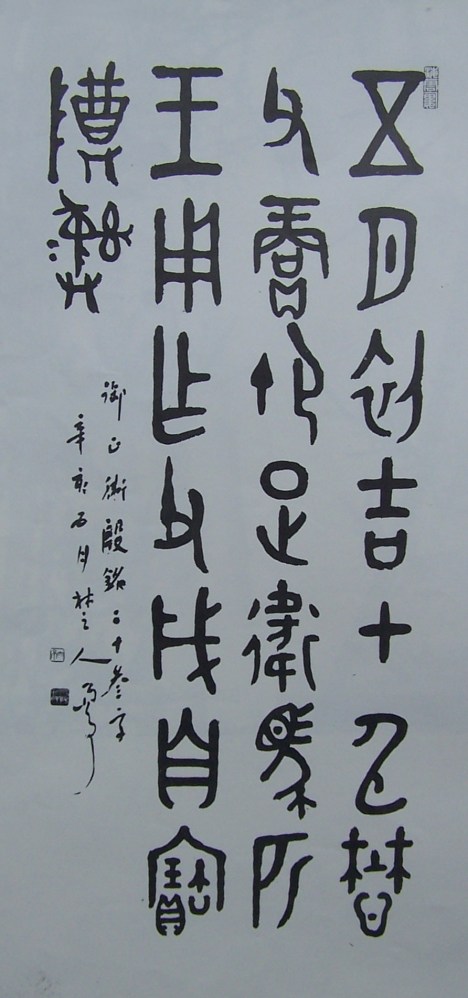 五月初吉甲申懋
父賞御正衛馬匹
王用乍父戊自寶
尊彝
御正衛殷銘二十叁字
辛亥 月 人